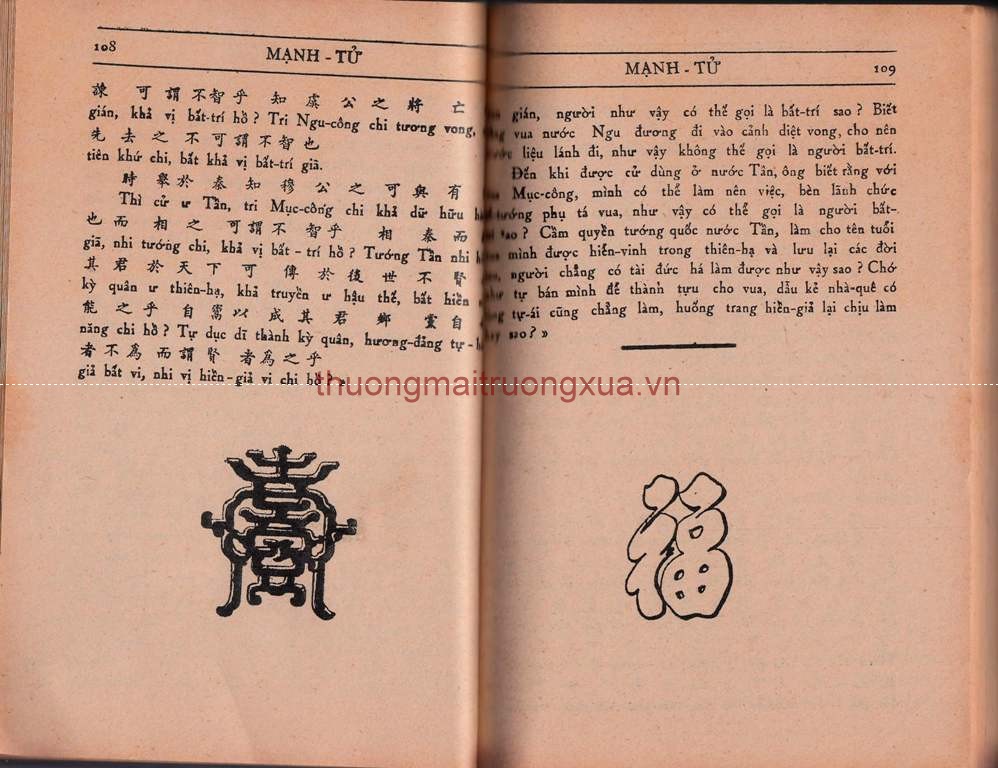 108
MẠNH - TỬ
諫 可 謂 不 智 乎 知 虞 公 之 將 亡
gián, khả vị bất-trí hồ ? Tri Ngu-công chi tương vong,
先 去 之 不 可 謂 不 智 也
tiên khứ chi, bất khả vị bất-trí giã.
時 舉 於 秦 知 穆 公 之 可 與 有
Thì cử ư Tần, tri Mục-công chi khả dữ hữu
也 而 相 之 可 謂 不 智 乎 相 秦 而
giã, nhi tướng chi, khả vị bất - trí hồ ? Tướng Tần nhi
其 君 於 天 下 可 傳 於 後 世 不 賢
kỳ quân ư thiên-hạ, khả truyền ư hậu thế, bất hiền
能 之 乎 自 鬻 以 成 其 君 鄉 黨 自
năng chi hồ ? Tự dục dĩ thành kỳ quân, hương-đảng tự -
者 不 為 而 謂 賢 者 為 之 乎
giả bất vi, nhi vị hiền-giả vi chi hồ ? »
MẠNH - TỬ
109
gián, người như vậy có thể gọi là bất-trí sao ? Biết
vua nước Ngu đương đi vào cảnh diệt vong, cho nên
liệu lánh đi, như vậy không thể gọi là người bất-trí.
Đến khi được cử dùng ở nước Tần, ông biết rằng với
Mục-công, mình có thể làm nên việc, bèn lãnh chức
tướng phụ tá vua, như vậy có thể gọi là người bất-
sao ? Cầm quyền tướng quốc nước Tần, làm cho tên tuổi
mình được hiển-vinh trong thiên-hạ và lưu lại các đời
người chẳng có tài đức há làm được như vậy sao ? Chớ
tự bán mình để thành tựu cho vua, dẫu kẻ nhà-quê có
tự-ái cũng chẳng làm, huống trang hiền-giả lại chịu làm
sao ? »
thuongmaitruongxua.vn
壽
福